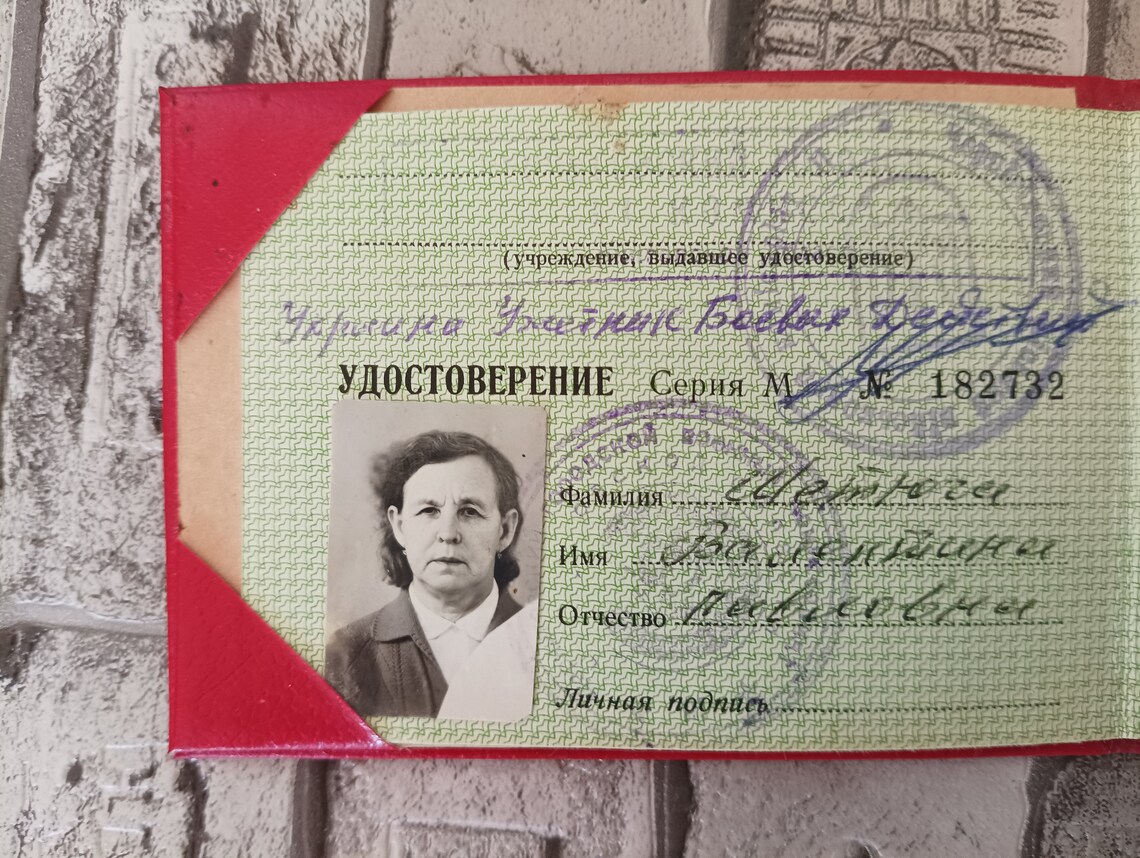 (учреждение, выдавшее удостоверение)
Украина Участник Боевых Действий
УДОСТОВЕРЕНИЕ Серия М № 182732
Фамилия
Имя Валентина
Отчество Павловна
Личная подпись